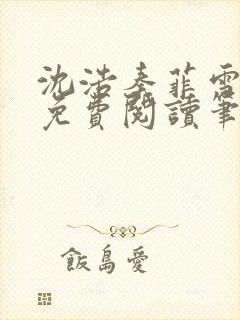 沈浩秦菲雪
免費閱讀筆
飯島愛